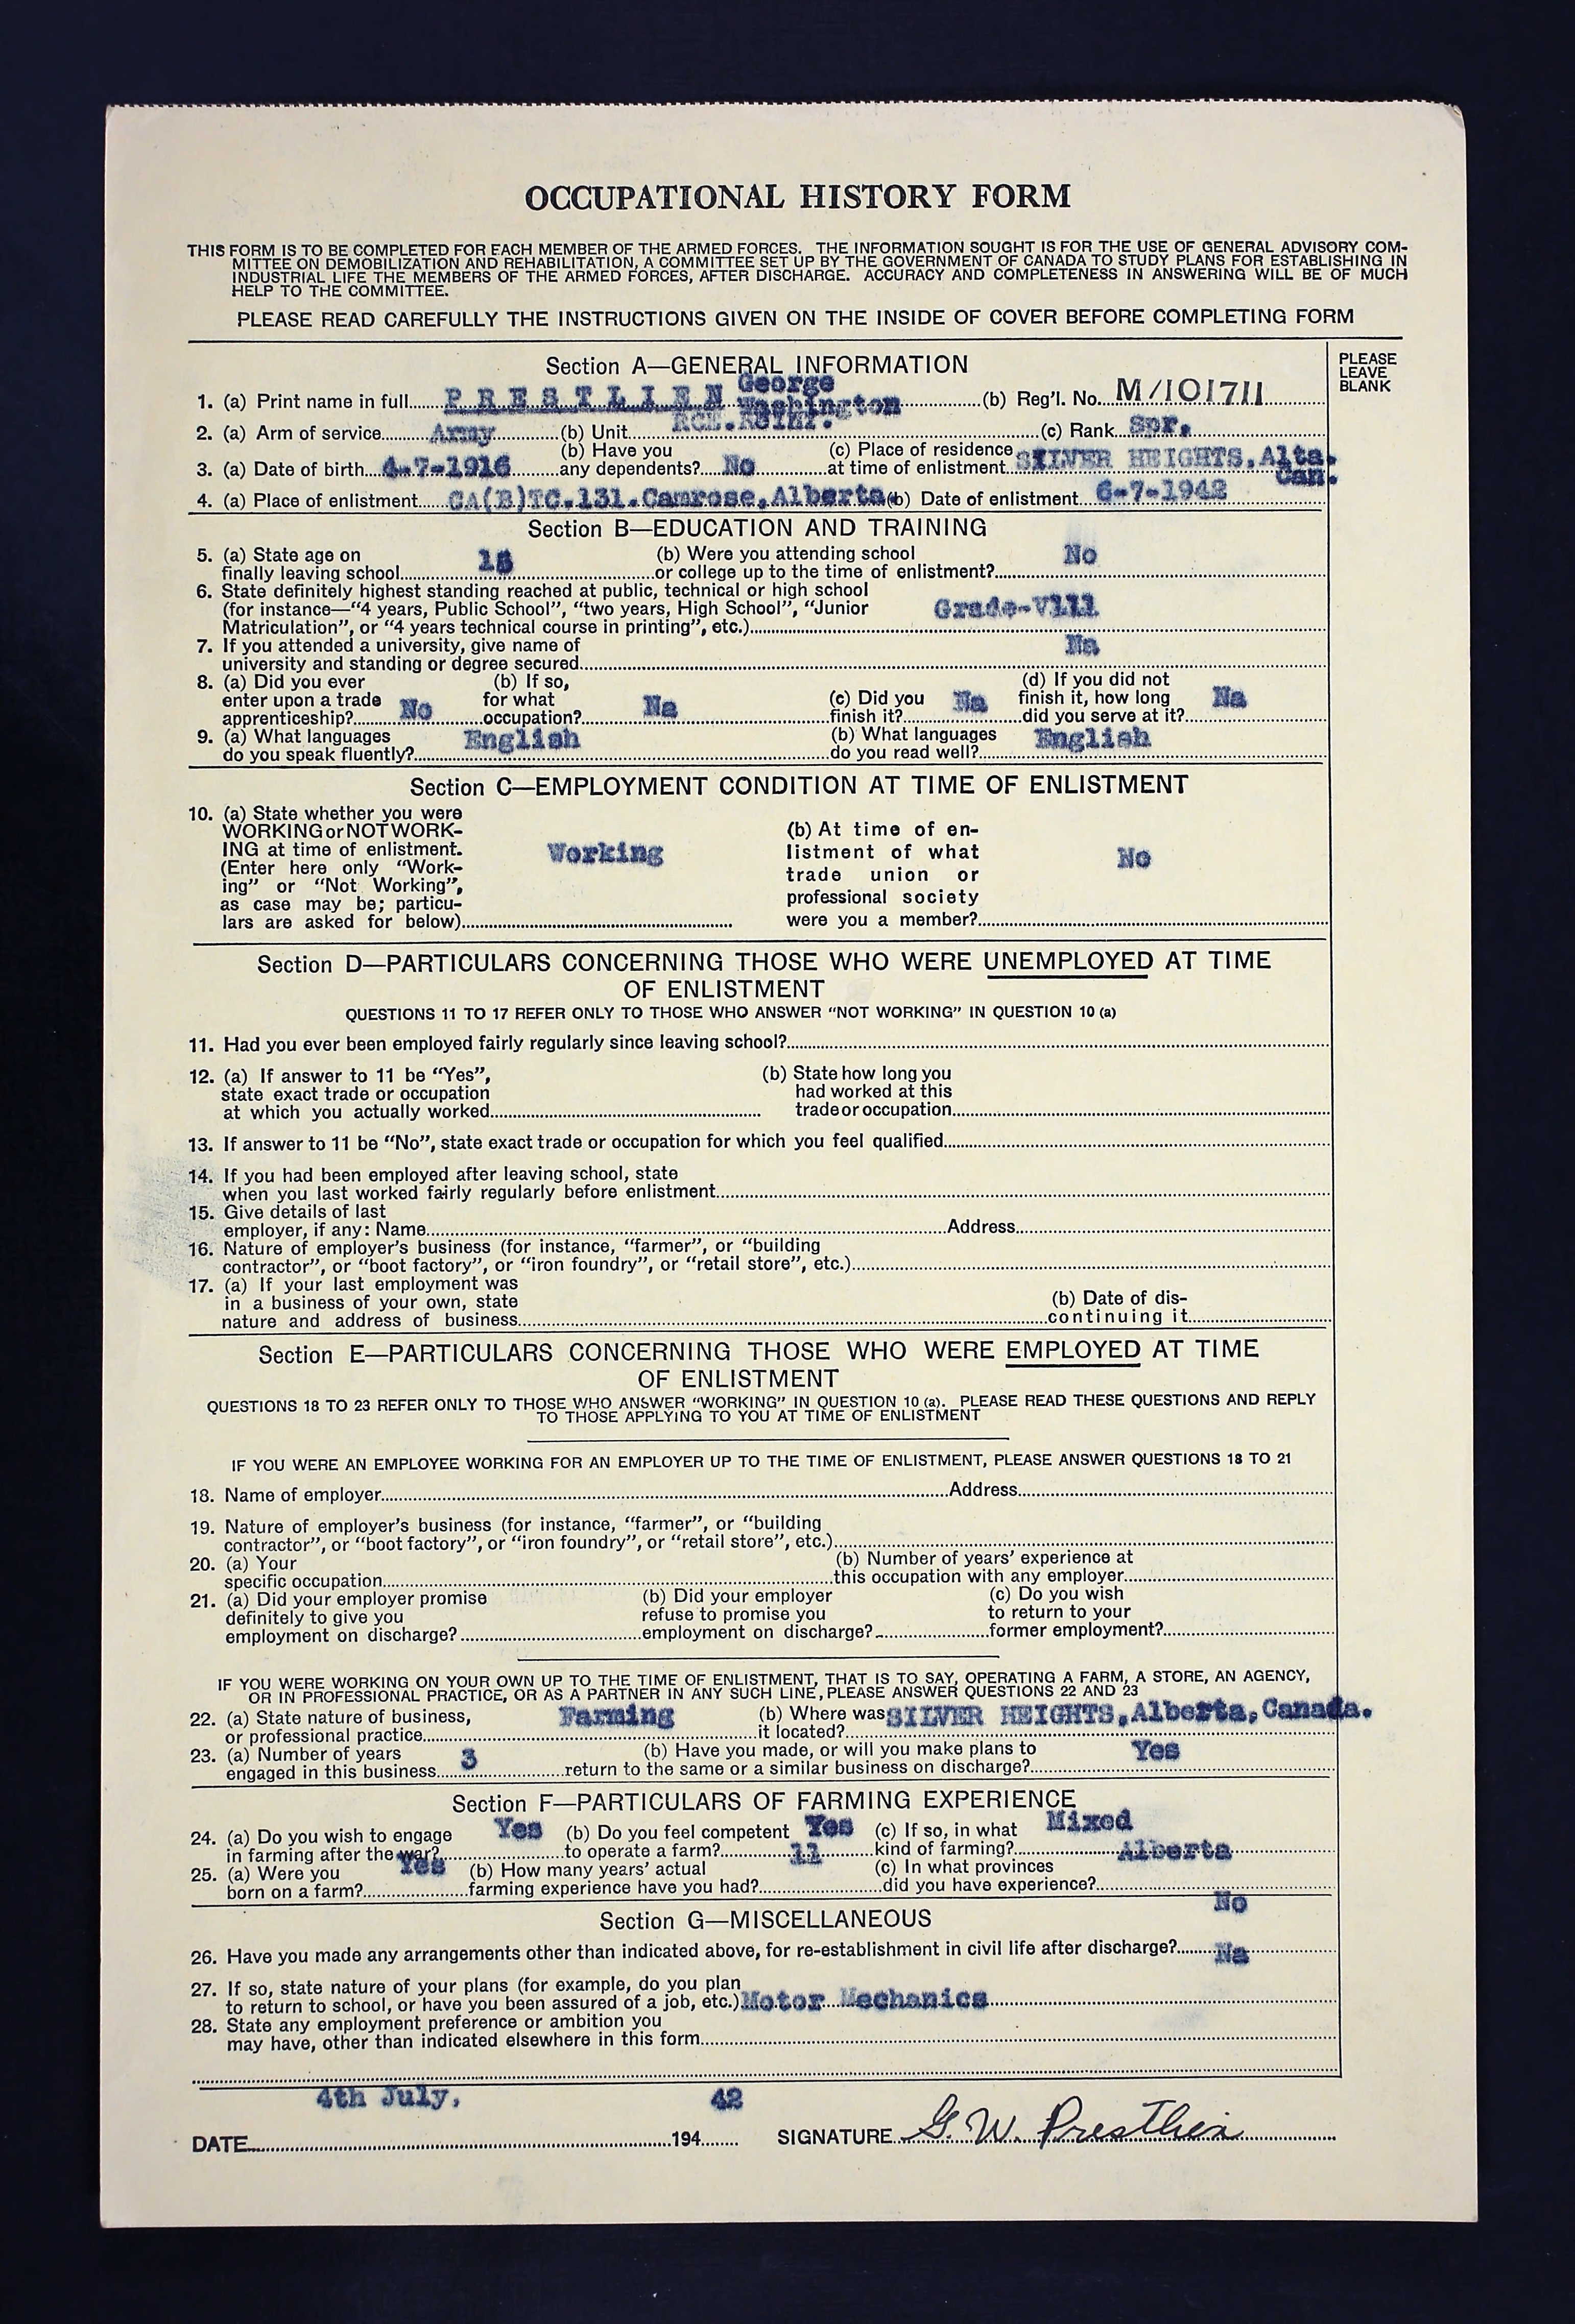 OCCUPATIONAL HISTORY FORM
THIS FORM IS TO BE COMPLETED FOR EACH MEMBER OF THE ARMED FORCES. THE INFORMATION SOUGHT IS FOR THE USE OF GENERAL ADVISORY COM-
MITTEE ON DEMOBILIZATION AND REHABILITATION, A COMMITTEE SET UP BY THE GOVERNMENT OF CANADA TO STUDY PLANS FOR ESTABLISHING IN
INDUSTRIAL LIFE THE MEMBERS OF THE ARMED FORCES, AFTER DISCHARGE. ACCURACY AND COMPLETENESS IN ANSWERING WILL BE OF MUCH
HELP TO THE COMMITTEE.
PLEASE READ CAREFULLY THE INSTRUCTIONS GIVEN ON THE INSIDE OF COVER BEFORE COMPLETING FORM
Section A—GENERAL INFORMATION
PLEASE
LEAVE
BLANK
George
1. (a) Print name in full PRESTLIEN Washington (b) Reg'l. No. M/101711
2. (a) Arm of service Army (b) Unit RCE. (c) Rank Spr.
(b) Have you (c) Place of residence
3. (a) Date of birth 4-7-1916 any dependents? No at time of enlistment SILVER HEIGHTS, Alta.
Can.
4. (a) Place of enlistment CA(B)TC.131.Camrose,Alberta (b) Date of enlistment 6-7-1942
Section B—EDUCATION AND TRAINING
5. (a) State age on (b) Were you attending school No
finally leaving school or college up to the time of enlistment?
6. State definitely highest standing reached at public, technical or high school
(for instance—"4 years, Public School", "two years, High School", "Junior Grade-Vlll
Matriculation", or "4 years technical course in printing", etc.)
7. If you attended a university, give name of Na
university and standing or degree secured
8. (a) Did you ever (b) If so, (d) If you did not
enter upon a trade No for what Na (c) Did you Na finish it, how long Na
apprenticeship? occupation? finish it? did you serve at it?
9. (a) What languages English (b) What languages English
do you speak fluently? do you read well?
Section C—EMPLOYMENT CONDITION AT TIME OF ENLISTMENT
10. (a) State whether you were
WORKING or NOT WORK-
ING at time of enlistment.
(Enter here only "Work-
ing" or "Not Working",
as case may be; particu-
lars are asked for below)
Working
(b) At time of en-
listment of what
trade union or
professional society
were you a member?
No
Section D—PARTICULARS CONCERNING THOSE WHO WERE UNEMPLOYED AT TIME
OF ENLISTMENT
QUESTIONS 11 TO 17 REFER ONLY TO THOSE WHO ANSWER "NOT WORKING" IN QUESTION 10 (a)
11. Had you ever been employed fairly regularly since leaving school?
12. (a) If answer to 11 be "Yes", (b) State how long you
state exact trade or occupation had worked at this
at which you actually worked trade or occupation
13. If answer to 11 be "No", state exact trade or occupation for which you feel qualified
14. If you had been employed after leaving school, state
when you last worked fairly regularly before enlistment
15. Give details of last
employer, if any: Name Address
16. Nature of employer's business (for instance, "farmer", or "building
contractor", or "boot factory", or "iron foundry", or "retail store", etc.)
17. (a) If your last employment was
in a business of your own, state (b) Date of dis-
nature and address of business continuing it
Section E—PARTICULARS CONCERNING THOSE WHO WERE EMPLOYED AT TIME
OF ENLISTMENT
QUESTIONS 18 TO 23 REFER ONLY TO THOSE WHO ANSWER "WORKING" IN QUESTION 10 (a). PLEASE READ THESE QUESTIONS AND REPLY
TO THOSE APPLYING TO YOU AT TIME OF ENLISTMENT
IF YOU WERE AN EMPLOYEE WORKING FOR AN EMPLOYER UP TO THE TIME OF ENLISTMENT, PLEASE ANSWER QUESTIONS 18 TO 21
18. Name of employer Address
19. Nature of employer's business (for instance, "farmer", or "building
contractor", or "boot factory", or "iron foundry", or "retail store", etc.)
20. (a) Your (b) Number of years' experience at
specific occupation this occupation with any employer
21. (a) Did your employer promise (b) Did your employer (c) Do you wish
definitely to give you refuse to promise you to return to your
employment on discharge? employment on discharge? former employment?
IF YOU WERE WORKING ON YOUR OWN UP TO THE TIME OF ENLISTMENT, THAT IS TO SAY, OPERATING A FARM, A STORE, AN AGENCY,
OR IN PROFESSIONAL PRACTICE, OR AS A PARTNER IN ANY SUCH LINE, PLEASE ANSWER QUESTIONS 22 AND 23
22. (a) State nature of business, Farming (b) Where was SILVER HEIGHTS,Alberta,Canada.
or professional practice it located?
23. (a) Number of years 3 (b) Have you made, or will you make plans to Yes
engaged in this business return to the same or a similar business on discharge?
Section F—PARTICULARS OF FARMING EXPERIENCE
24. (a) Do you wish to engage Yes (b) Do you feel competent Yes (c) If so, in what Mixed
in farming after the war? to operate a farm? 11 kind of farming? Alberta
25. (a) Were you Yes (b) How many years' actual (c) In what provinces
born on a farm? farming experience have you had? did you have experience?
No
Section G—MISCELLANEOUS
26. Have you made any arrangements other than indicated above, for re-establishment in civil life after discharge? Na
27. If so, state nature of your plans (for example, do you plan
to return to school, or have you been assured of a job, etc.) Motor Mechanics
28. State any employment preference or ambition you
may have, other than indicated elsewhere in this form
4th July, 42
DATE 194 SIGNATURE G. W. Presthien